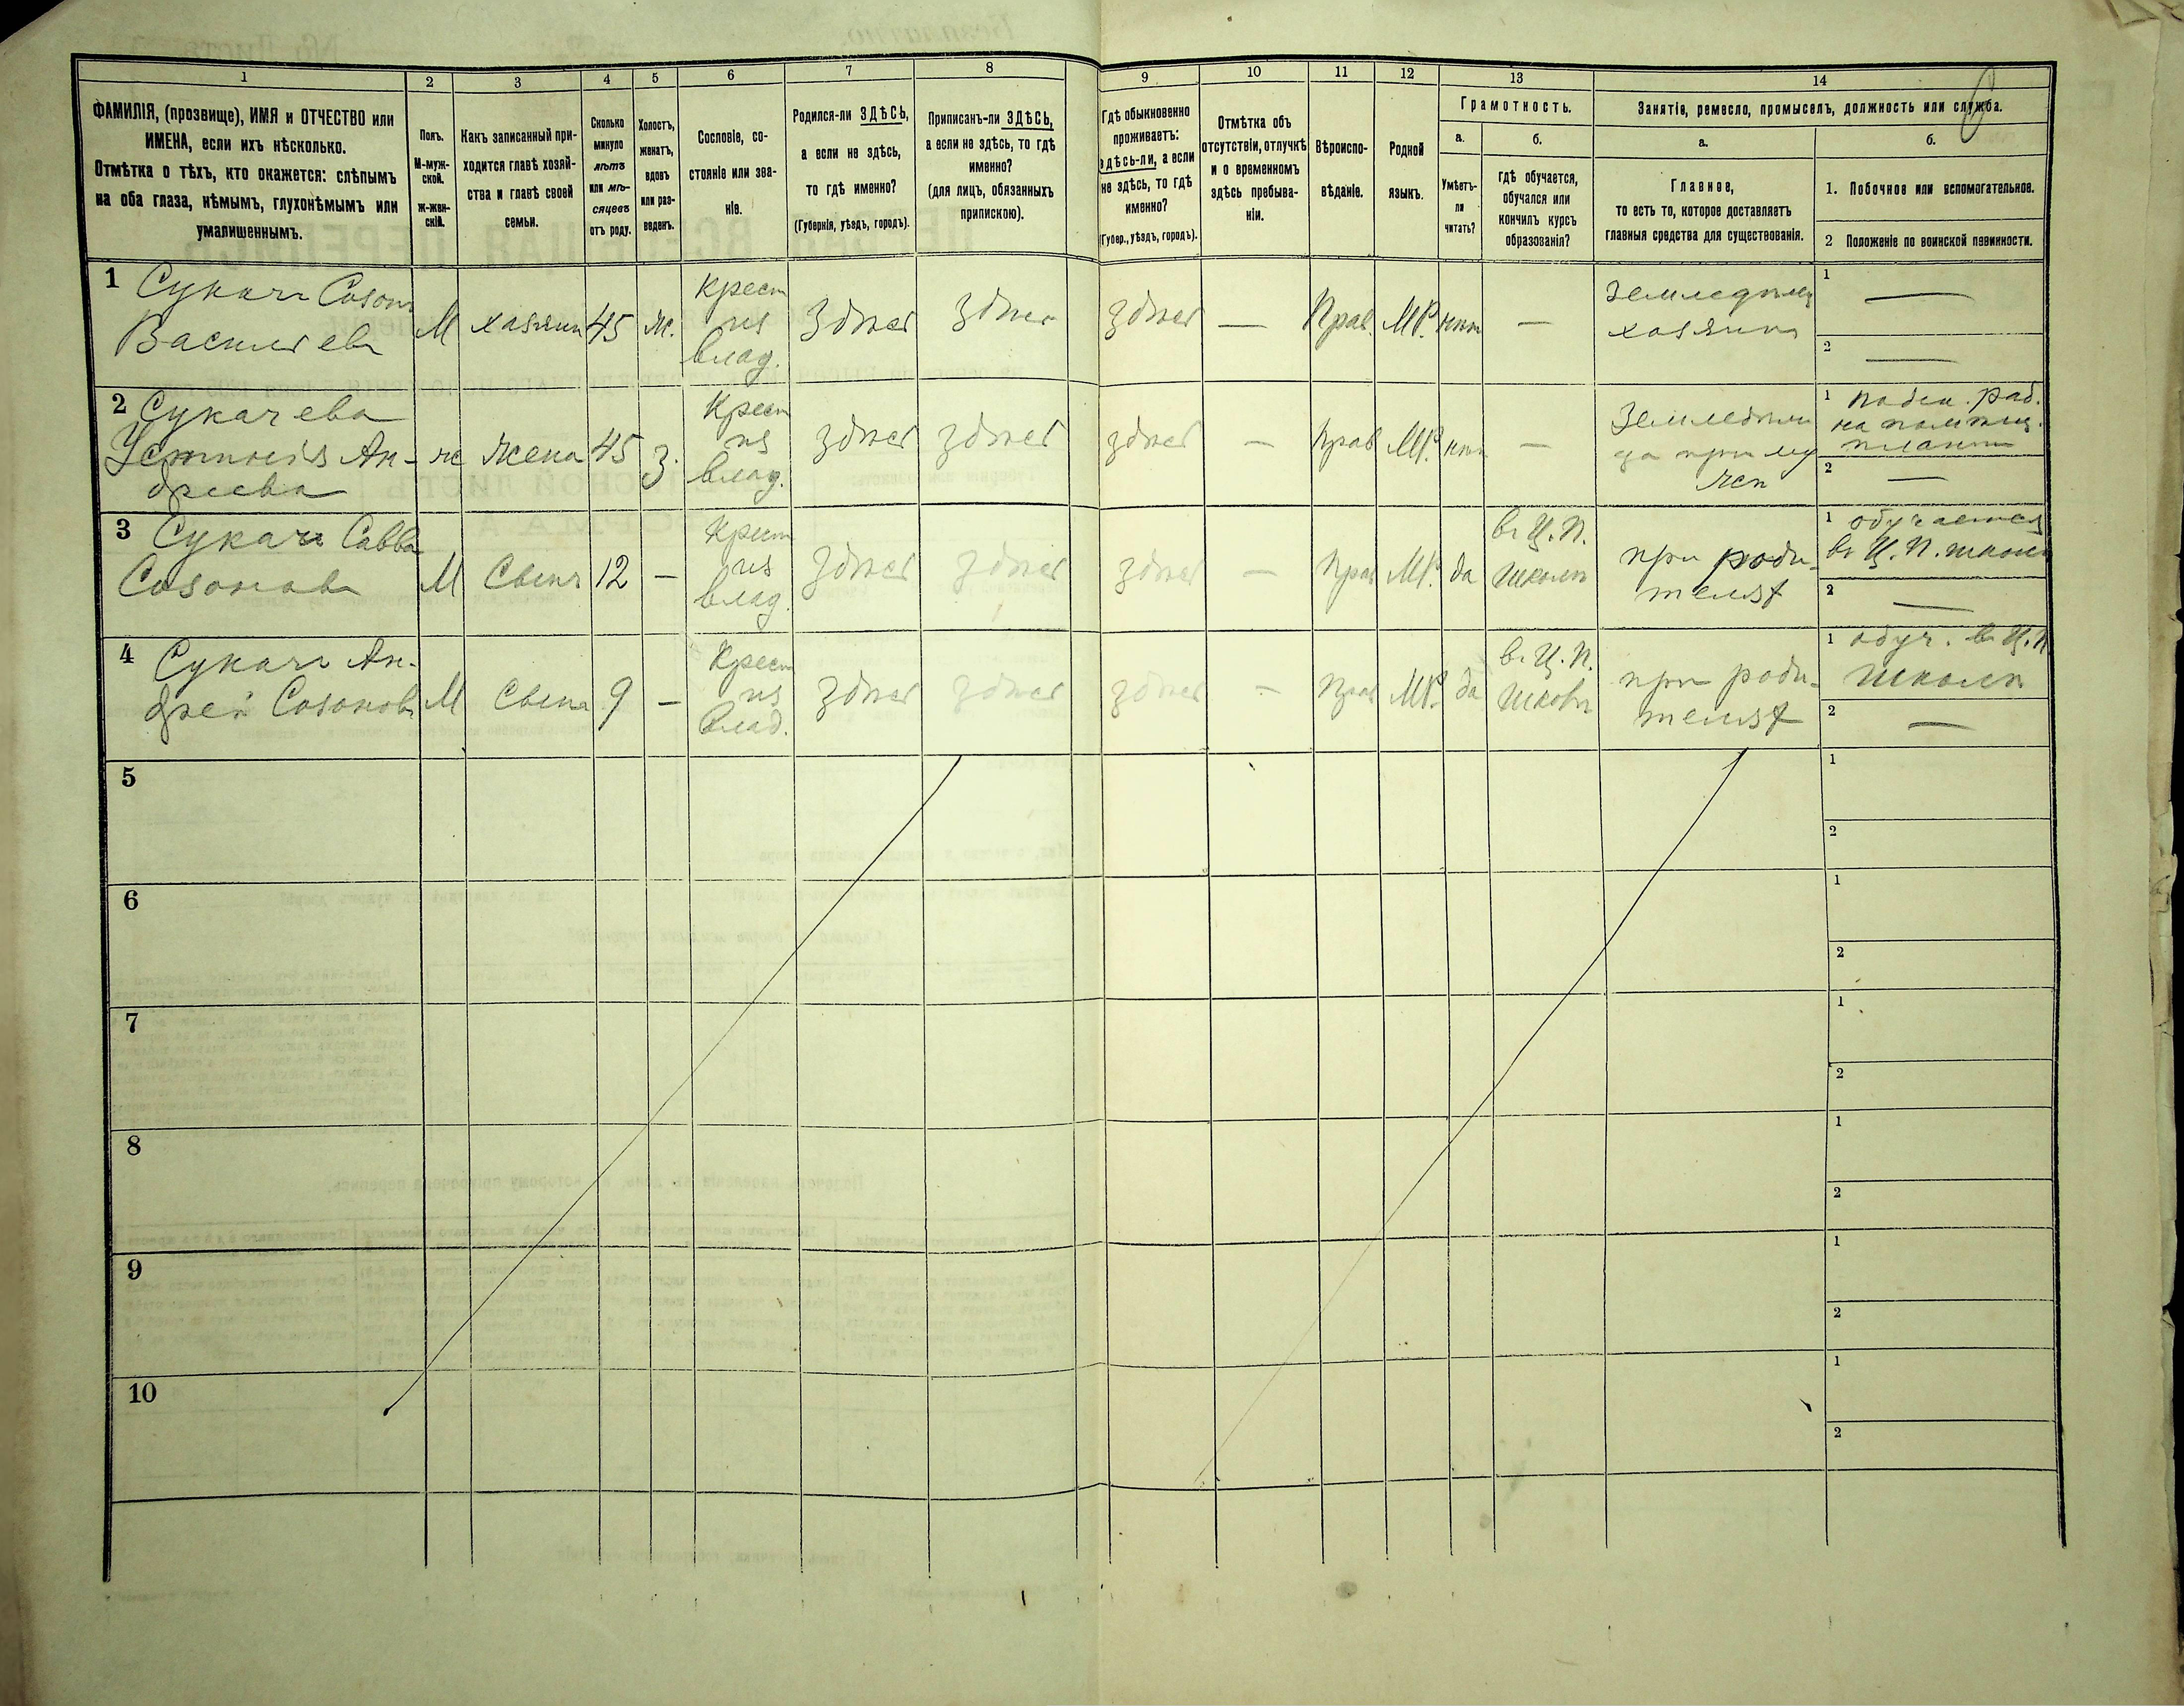 1 2 3 4 5 6 7 8 9 10 11 12 13 14
ФАМИЛІЯ, (прозвище), ИМЯ и ОТЧЕСТВО или
ИМЕНА, если ихъ нѣсколько.
Отмѣтка о тѣхъ, кто окажется: слѣпымъ
на оба глаза, нѣмымъ, глухонѣмымъ или
умалишеннымъ.
Полъ.
М-муж-
ской.
ж-жен-
скій.
Какъ записанный при-
ходится главѣ хозяй-
ства и главѣ своей
семьи.
Сколько
минуло
лѣтъ
или мѣ-
сяцевъ
отъ роду.
Холостъ,
женатъ,
вдовъ
или раз-
веденъ.
Сословіе, со-
стояніе или зва-
ніе.
Родился-ли ЗДѢСЬ,
а если не здѣсь,
то гдѣ именно?
(Губернія, уѣздъ, городъ).
Приписанъ-ли ЗДѢСЬ,
а если не здѣсь, то гдѣ
именно?
(для лицъ, обязанныхъ
припискою).
Гдѣ обыкновенно
проживаетъ:
здѣсь-ли, а если
не здѣсь, то гдѣ
именно?
(Губер., уѣздъ, городъ).
Отмѣтка объ
отсутствіи, отлучкѣ
и о временномъ
здѣсь пребыва-
ніи.
Вѣроиспо-
вѣданіе.
Родной
языкъ.
Грамотность.
а.
Умѣетъ-
ли
читать?
б.
гдѣ обучается,
обучался или
кончилъ курсъ
образованія?
Занятіе, ремесло, промыселъ, должность или служба.
а.
Главное,
то есть то, которое доставляетъ
главныя средства для существованія.
б.
1. Побочное или вспомогательное.
2 Положеніе по воинской повинности.
6
1 Сукачъ Созонъ
Васильевъ
М
хазяинъ
45
ж.
крест
из
влад.
Здѣсь
Здѣсь
здѣсь
—
Прав.
МР.
нѣтъ
—
Земледѣлец
хазяинъ
1 —
2 —
2 Сукачева
Устинія Ан-
дреева
ж
жена
45
З.
Крест
из
влад.
здѣсь
здѣсь
здѣсь
—
Прав
МР.
нѣтъ
—
1
2 —
3 Сукачъ Савва
Созоновъ
М
Сынъ
12
—
Крест
из
влад.
здѣсь
здѣсь
здѣсь
—
Прав
МР.
да
въ Ц. П.
школѣ
при роди-
теляхъ
1 обучается
въ Ц. П. школѣ
2 —
4 Сукачъ Ан-
дрей Созоновъ
М
Сынъ
9
—
Крест
из
влад.
здѣсь
здѣсь
здѣсь
—
Прав
МР.
да
въ Ц. П.
школѣ
при роди-
теляхъ
1 обуч. въ Ц. П
школѣ
2 —
5
1
2
6
1
2
7
1
2
8
1
2
9
1
2
10
1
2